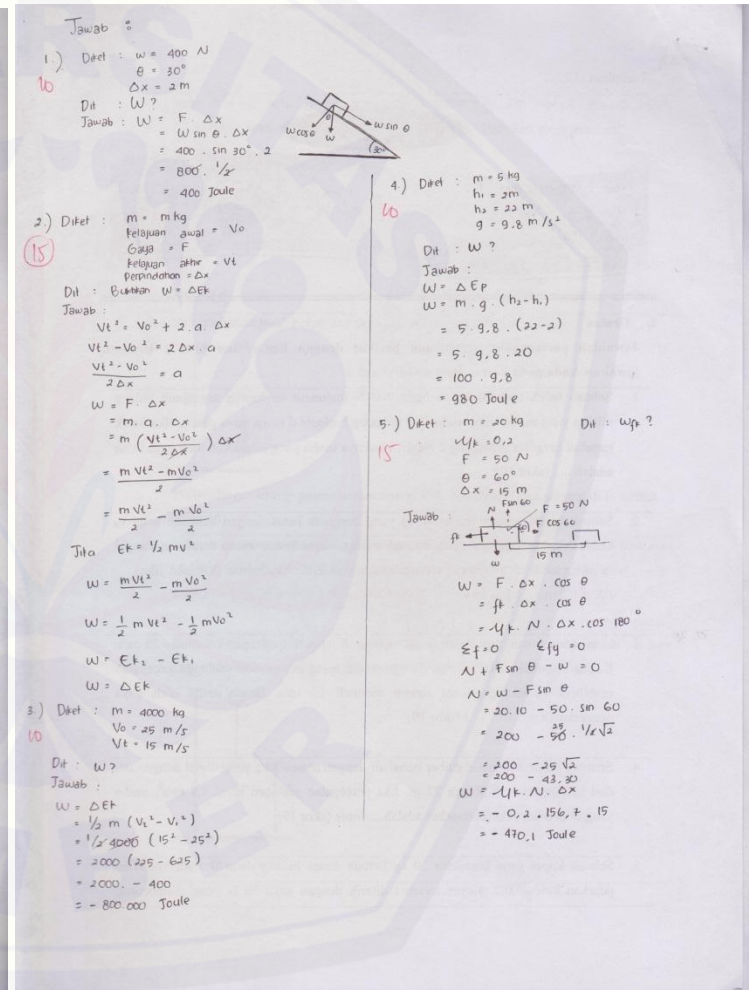 Jawab :
1.) Diket : w = 400 N
10
θ = 30°
Δx = 2 m
Dit : W ?
Jawab : W = F . Δx
= W sin θ . Δx
= 400 . sin 30° . 2
= 800 . 1/2
= 400 Joule
w cos θ
θ
w
w sin θ
30°
2.) Diket : m = m kg
15
Kelajuan awal = Vo
Gaya = F
Kelajuan akhir = Vt
Perpindahan = Δx
Dit : Buktikan W = ΔEk
Jawab :
Vt² = Vo² + 2 . a . Δx
Vt² - Vo² = 2 Δx . a
(Vt² - Vo²) / 2 Δx = a
W = F . Δx
= m . a . Δx
= m ((Vt² - Vo²) / 2 Δx) Δx
= (m Vt² - m Vo²) / 2
= m Vt² / 2 - m Vo² / 2
Jika Ek = 1/2 mv²
W = m Vt² / 2 - m Vo² / 2
W = 1/2 m Vt² - 1/2 m Vo²
W = Ek₂ - Ek₁
W = ΔEk
3.) Diket : m = 4000 kg
10
Vo = 25 m/s
Vt = 15 m/s
Dit : W ?
Jawab :
W = ΔEk
= 1/2 m (V₂² - V₁²)
= 1/2 4000 (15² - 25²)
= 2000 (225 - 625)
= 2000 . - 400
= - 800.000 Joule
4.) Diket : m = 5 kg
10
h₁ = 2m
h₂ = 22 m
g = 9,8 m/s²
Dit : W ?
Jawab :
W = Δ Ep
W = m . g . (h₂ - h₁)
= 5 . 9,8 . (22-2)
= 5 . 9,8 . 20
= 100 . 9,8
= 980 Joule
5.) Diket : m = 20 kg Dit : Wfk ?
15
μk = 0,2
F = 50 N
θ = 60°
Δx = 15 m
Jawab :
N F sin 60 F = 50 N
fk F cos 60
w 15 m
W = F . Δx . cos θ
= fk . Δx . cos θ
= μk . N . Δx . cos 180°
Σf = 0 Σfy = 0
N + F sin θ - w = 0
N = w - F sin θ
= 20.10 - 50 . sin 60
25
= 200 - 50 . 1/2 √2
= 200 - 25 √2
= 200 - 43,30
W = μk . N . Δx
= - 0,2 . 156,7 . 15
= - 470,1 Joule